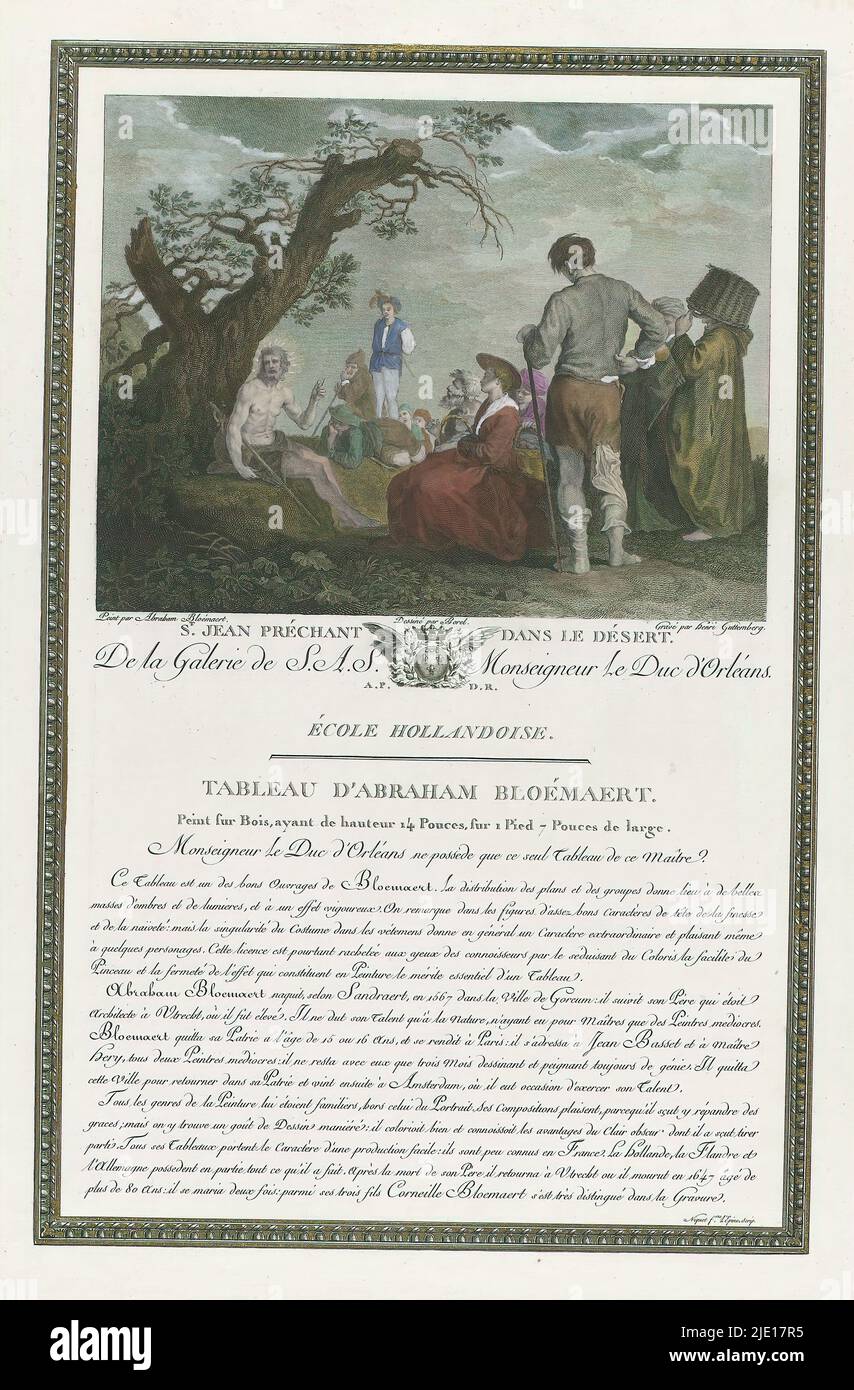 Peint par Abraham Bloémaert.
Dessiné par Borel.
Gravé par Henri Guttemberg.
S.T JEAN PRÉCHANT DANS LE DÉSERT.
De la Galerie de S.A.S. Monseigneur Le Duc d'Orléans.
A.P. D.R.
ÉCOLE HOLLANDOISE.
TABLEAU D'ABRAHAM BLOÉMAERT.
Peint sur Bois, ayant de hauteur 14 Pouces, sur 1 Pied 7 Pouces de large.
Monseigneur Le Duc d'Orléans ne possede que ce seul Tableau de ce Maître.
Ce Tableau est un des bons Ouvrages de Bloemaert. La distribution des plans et des groupes donne lieu à de belles
masses d'ombres et de lumieres, et à un effet vigoureux. On remarque dans les figures d'assez bons Caracteres de tête de la finesse
et de la naïveté: mais la singularité du Costume dans les vetemens donne en général un Caractère extraordinaire et plaisant même
à quelques personages. Cette licence est pourtant rachetée aux yeux des connoisseurs par le seduisant du Coloris la facilité du
Pinceau et la fermeté de l'effet qui constituent en Peinture le mérite essentiel d'un Tableau.
Abraham Bloemaert naquit, selon Sandraert, en 1567 dans la Ville de Gorcum: il suivit son Pere qui étoit
Architecte à Utrecht, où il fut élevé. Il ne dut son Talent qu'à la Nature, n'ayant eu pour Maîtres que des Peintres mediocres.
Bloemaert quitta sa Patrie a l'âge de 15 ou 16 Ans, et se rendit à Paris: il s'adressa à Jean Basset et à Maître
Hery, tous deux Peintres mediocres: il ne resta avec eux que trois Mois dessinant et peignant toujours de génie. Il quitta
cette Ville pour retourner dans sa Patrie et vint ensuite à Amsterdam, où il eut occasion d'exercer son Talent.
Tous les genres de la Peinture lui étoient familiers, hors celui du Portrait. Ses Compositions plaisent, parcequ'il sçut y répandre des
graces; mais on y trouve un goût de Dessin maniéré: il colorioit bien et connoissoit les avantages du Clair obscur dont il a sçut tirer
parti. Tous ses Tableaux portent le Caractère d'une production facile: ils sont peu connus en France. La Hollande, la Flandre et
l'Allemagne possedent en partie tout ce qu'il a fait. Après la mort de son Pere il retourna à Utrecht ou il mourut en 1647 agé de
plus de 80 Ans: il se maria deux fois: parmi ses trois fils Corneille Bloemaert s'est très distingué dans la Gravure.
alamy
alamy
Image ID: 2JE17R5
www.alamy.com